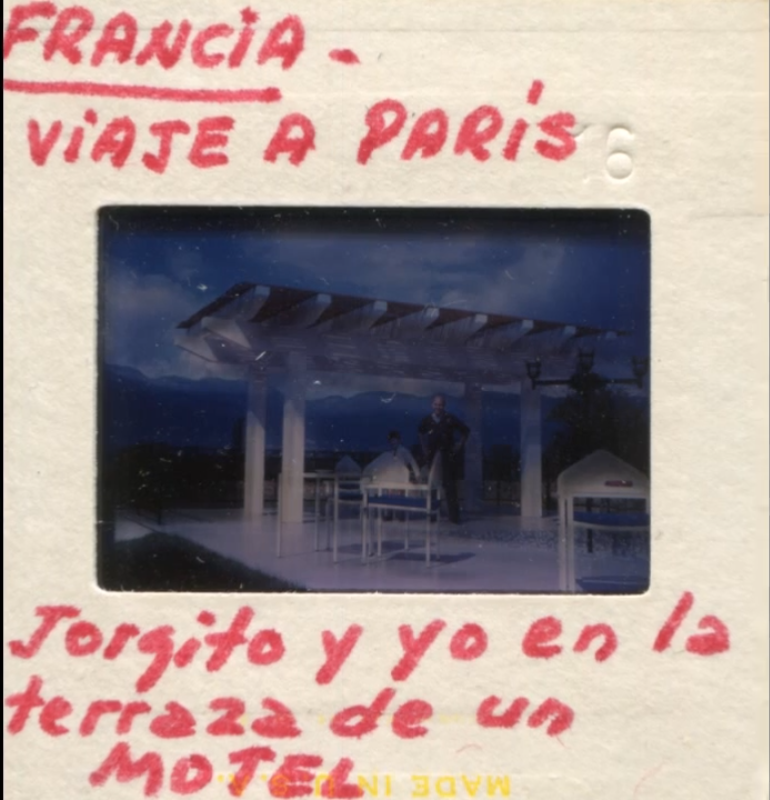 FRANCIA -
VIAJE A PARÍS
6
Jorgito y yo en la
terraza de un
MOTEL
MADE IN U.S.A.